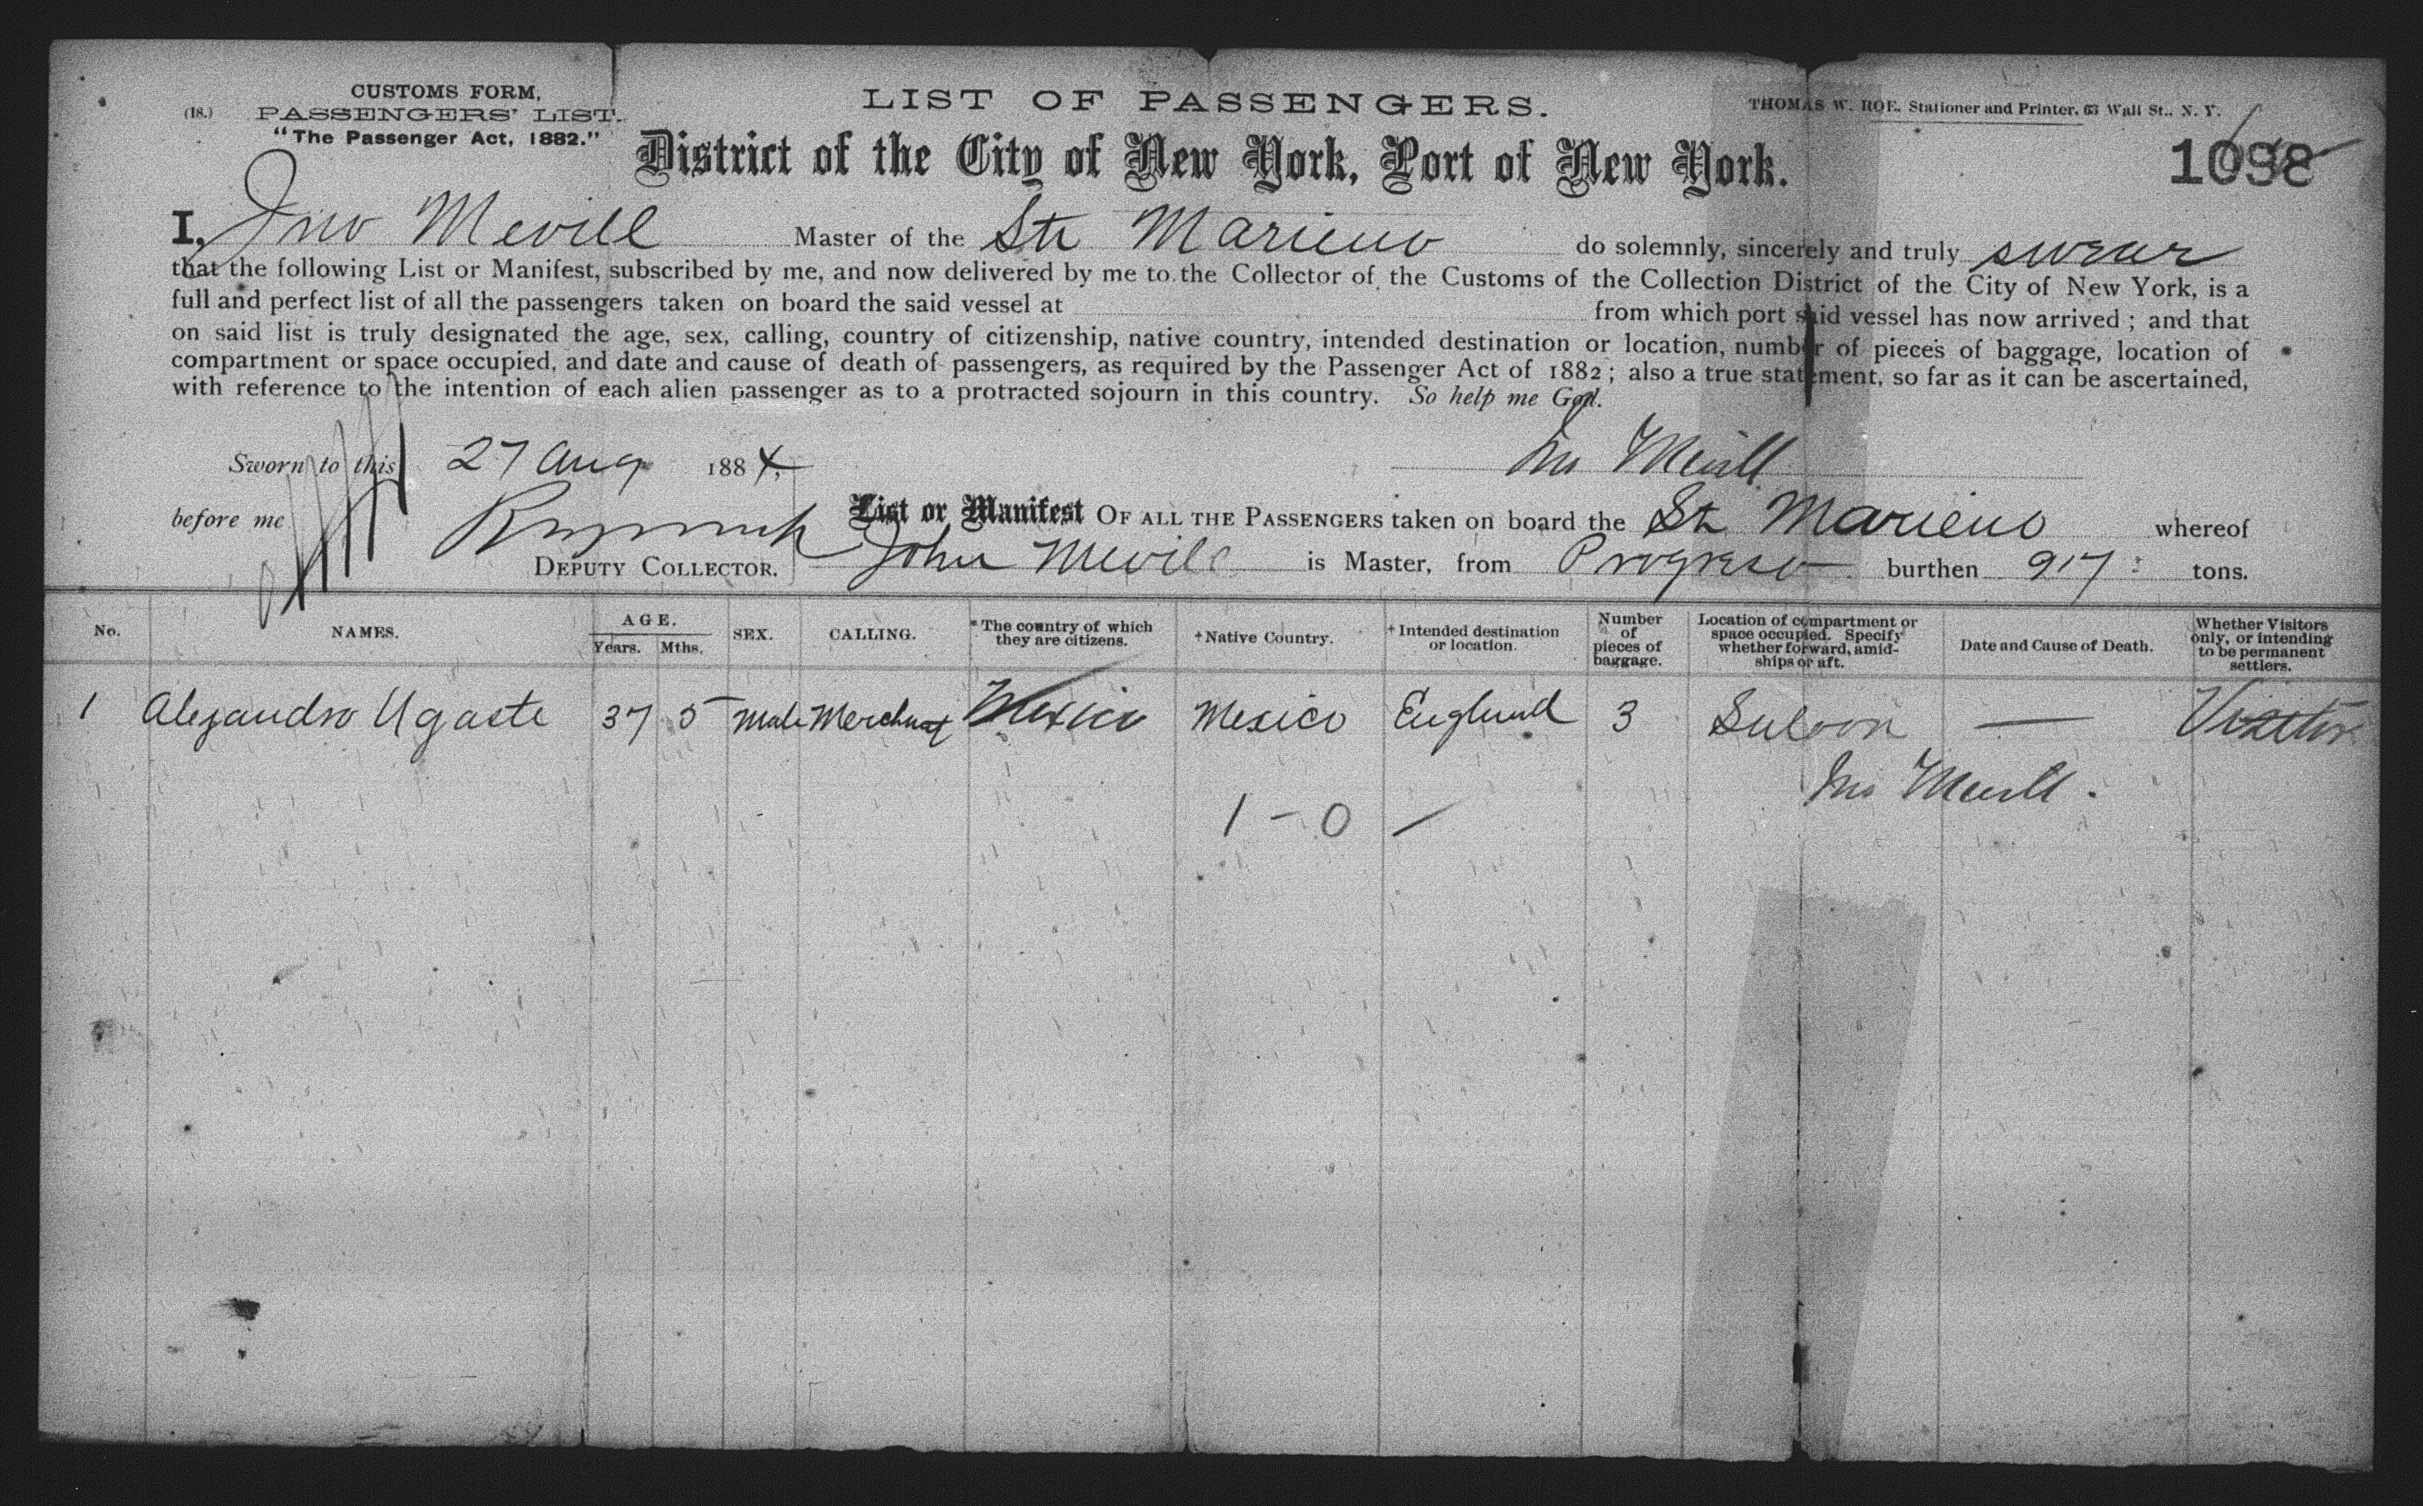 CUSTOMS FORM,
(18.) PASSENGERS' LIST.
"The Passenger Act, 1882."
LIST OF PASSENGERS.
THOMAS W. ROE, Stationer and Printer, 63 Wall St., N. Y.
District of the City of New York, Port of New York.
1098
I, Jno Mevill Master of the Str Marieno do solemnly, sincerely and truly swear
that the following List or Manifest, subscribed by me, and now delivered by me to the Collector of the Customs of the Collection District of the City of New York, is a
full and perfect list of all the passengers taken on board the said vessel at from which port said vessel has now arrived; and that
on said list is truly designated the age, sex, calling, country of citizenship, native country, intended destination or location, number of pieces of baggage, location of
compartment or space occupied, and date and cause of death of passengers, as required by the Passenger Act of 1882; also a true statement, so far as it can be ascertained,
with reference to the intention of each alien passenger as to a protracted sojourn in this country. So help me God.
Sworn to this 27 Aug 1884,
Jno Mevill
before me
DEPUTY COLLECTOR.
List or Manifest OF ALL THE PASSENGERS taken on board the Str Marieno whereof
John Mevill is Master, from Progreso burthen 917 tons.
No. NAMES. AGE. Years. Mths. SEX. CALLING. *The country of which they are citizens. †Native Country. †Intended destination or location. Number of pieces of baggage. Location of compartment or space occupied. Specify whether forward, amidships or aft. Date and Cause of Death. Whether Visitors only, or intending to be permanent settlers.
1 Alejandro Ugaste 37 5 Male Merchant Mexico Mexico England 3 Saloon — Visitor
Jno Mevill.
1 - 0